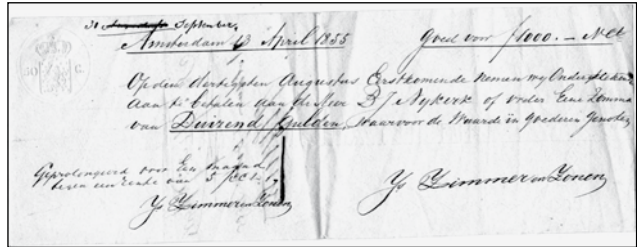 30 September
Amsterdam 13 April 1855 Goed voor ƒ1000.— N.Ct
Op den dertigsten Augustus Eerstkomende nemen wy Ondergetekend
aan te betalen aan de Heer B J Nykerk of order Eene Somma
van Duizend Gulden, Waarvoor de Waarde in goederen genoten
Geprolongeerd voor Een maand
tegen een rente van 5 pCt
Zimmer en Zonen
Zimmer en Zonen